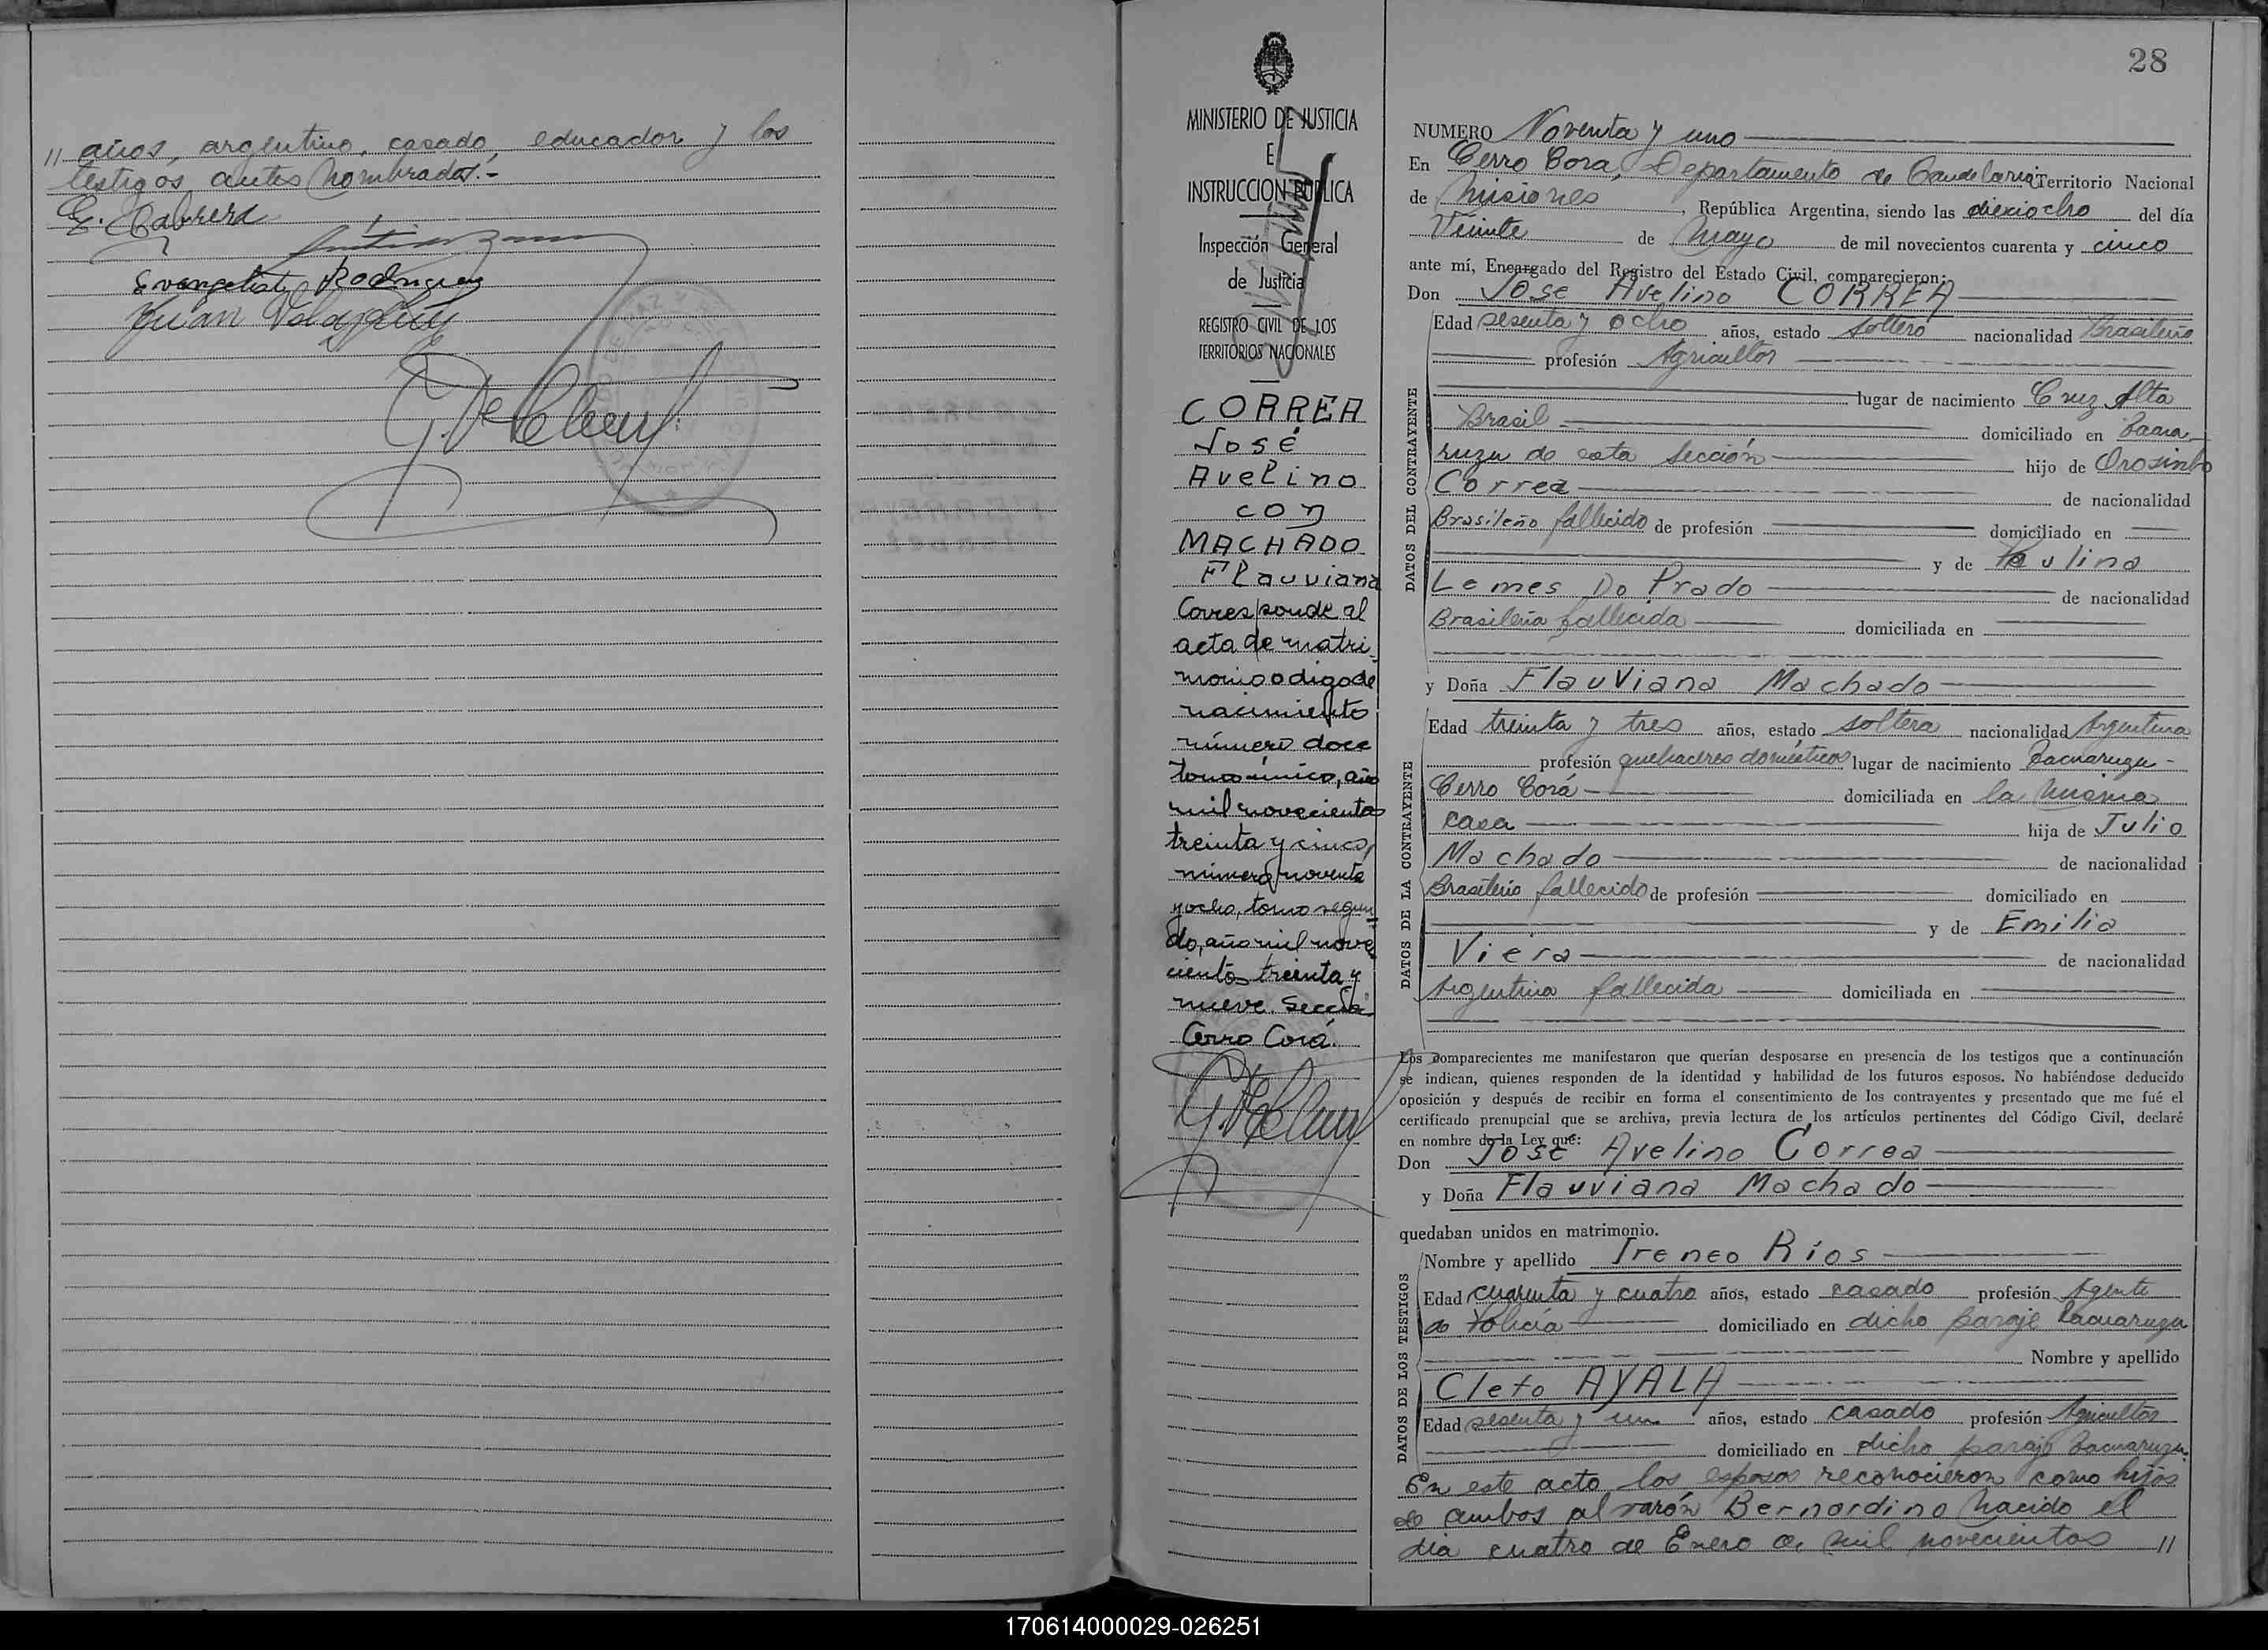 // años, argentino, casado, educador y los
testigos antes nombrados.-
E. Cabrera
Evangelista Rodriguez
Juan
28
MINISTERIO DE JUSTICIA
E
INSTRUCCION PUBLICA
Inspección General
de Justicia
REGISTRO CIVIL DE LOS
TERRITORIOS NACIONALES
CORREA
José
Avelino
con
MACHADO
Flauviana
Corresponde al
acta de matri-
monio o digo de
nacimiento
número doce
tomo único, año
mil novecientos
treinta y cinco,
número noventa
y ocho, tomo segun-
do, año mil nove-
cientos treinta y
nueve. Sección
Cerro Corá.
NUMERO Noventa y uno
En Cerro Cora, Departamento de Candelaria Territorio Nacional
de Misiones, República Argentina, siendo las dieciocho del día
Veinte de Mayo de mil novecientos cuarenta y cinco
ante mí, Encargado del Registro del Estado Civil, comparecieron:
Don José Avelino CORREA
DATOS DEL CONTRAYENTE
Edad sesenta y ocho años, estado soltero nacionalidad Brasileño
profesión Agricultor
lugar de nacimiento Cruz Alta
Brasil domiciliado en Tacua-
ruzu de esta Sección hijo de Orosimbo
Correa de nacionalidad
Brasileño fallecido de profesión domiciliado en
y de Paulina
Lemes Do Prado de nacionalidad
Brasileña fallecida domiciliada en
y Doña Flauviana Machado
DATOS DE LA CONTRAYENTE
Edad treinta y tres años, estado soltera nacionalidad Argentina
profesión quehaceres domésticos lugar de nacimiento Tacuaruzu-
Cerro Corá domiciliada en la misma
casa hija de Julio
Machado de nacionalidad
Brasileño fallecido de profesión domiciliado en
y de Emilia
Viera de nacionalidad
Argentina fallecida domiciliada en
Los comparecientes me manifestaron que querían desposarse en presencia de los testigos que a continuación
se indican, quienes responden de la identidad y habilidad de los futuros esposos. No habiéndose deducido
oposición y después de recibir en forma el consentimiento de los contrayentes y presentado que me fué el
certificado prenupcial que se archiva, previa lectura de los artículos pertinentes del Código Civil, declaré
en nombre de la Ley que:
Don José Avelino Correa
y Doña Flauviana Machado
quedaban unidos en matrimonio.
DATOS DE LOS TESTIGOS
Nombre y apellido Ireneo Rios
Edad cuarenta y cuatro años, estado casado profesión Agente
de Policía domiciliado en dicho paraje Tacuaruzu
Nombre y apellido
Cleto AYALA
Edad sesenta y un años, estado casado profesión Agricultor
domiciliado en dicho paraje Tacuaruzu.
En este acto los esposos reconocieron como hijos
de ambos al varón Bernardino nacido el
día cuatro de Enero de mil novecientos //
170614000029-026251